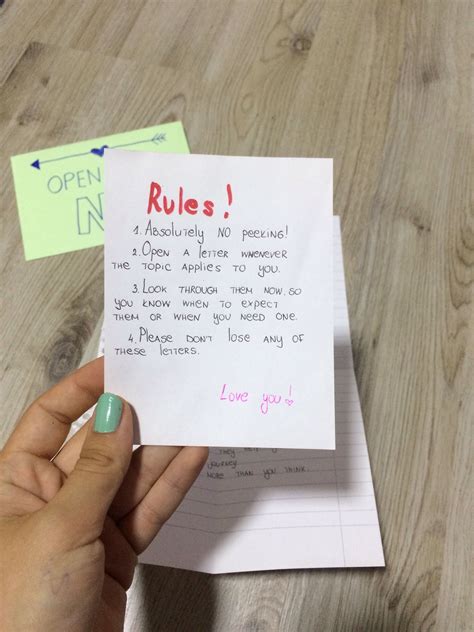 OPEN
N
Rules!
1. Absolutely NO peeking!
2. Open a letter whenever
the topic applies to you.
3. Look through them now, so
you know when to expect
them or when you need one.
4. Please don't lose any of
these letters.
Love you!
they
journey
more than you think.